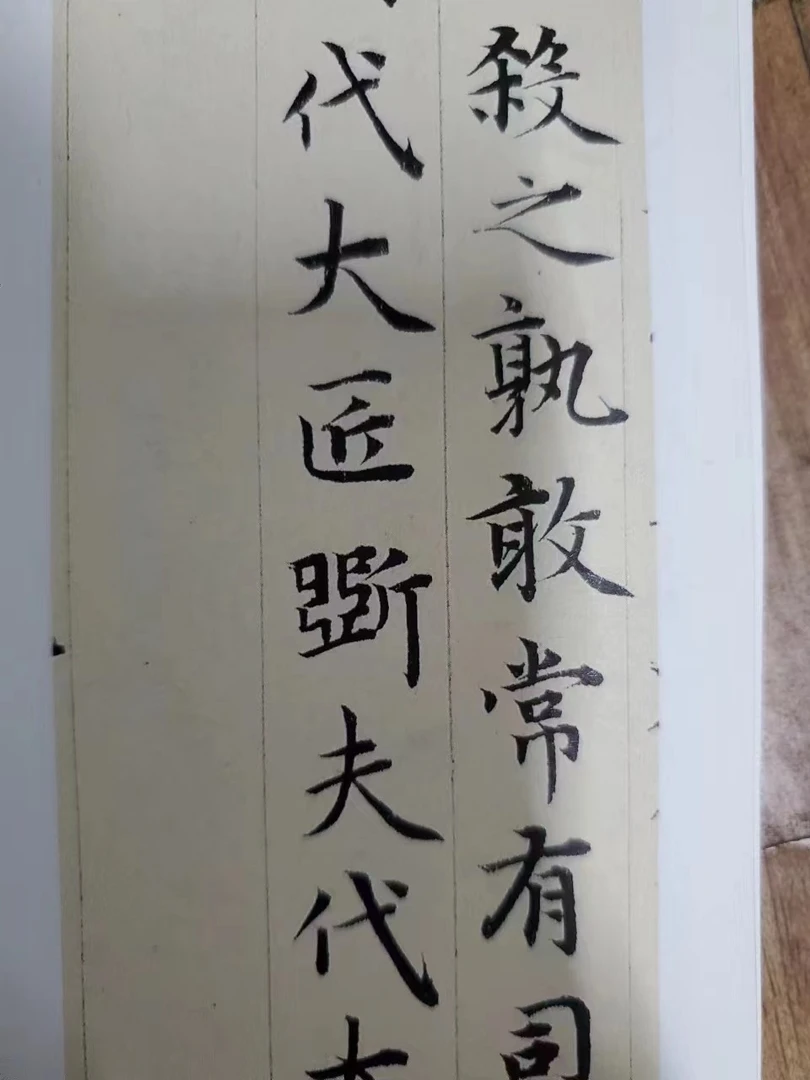 殺之孰敢常有司
代大匠斲夫代大